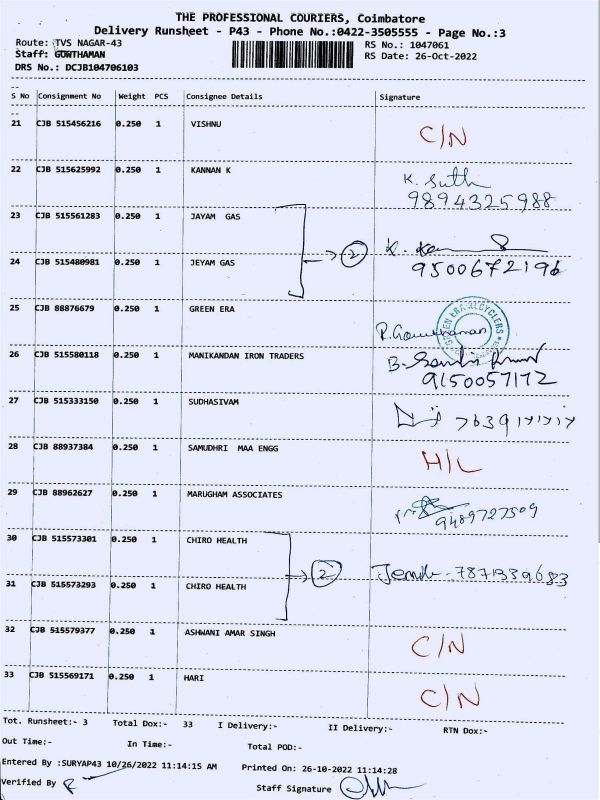 THE PROFESSIONAL COURIERS, Coimbatore
Delivery Runsheet - P43 - Phone No.:0422-3505555 - Page No.:3
Route: TVS NAGAR-43
RS No.: 1047061
Staff: GOWTHAMAN
RS Date: 26-Oct-2022
DRS No.: DCJB104706103
S No Consignment No Weight PCS Consignee Details Signature
21 CJB 515456216 0.250 1 VISHNU C/N
22 CJB 515625992 0.250 1 KANNAN K K. Suth
9894325988
23 CJB 515561283 0.250 1 JAYAM GAS
2 K.
24 CJB 515480981 0.250 1 JEYAM GAS 9500672196
25 CJB 88876679 0.250 1 GREEN ERA P. Gowthaman
GREEN ERA RECYCLERS
26 CJB 515580118 0.250 1 MANIKANDAN IRON TRADERS B.
9150057172
27 CJB 515333150 0.250 1 SUDHASIVAM
28 CJB 88937384 0.250 1 SAMUDHRI MAA ENGG H/L
29 CJB 88962627 0.250 1 MARUGHAM ASSOCIATES
9489727509
30 CJB 515573301 0.250 1 CHIRO HEALTH
2 7871339683
31 CJB 515573293 0.250 1 CHIRO HEALTH
32 CJB 515579377 0.250 1 ASHWANI AMAR SINGH C/N
33 CJB 515569171 0.250 1 HARI C/N
Tot. Runsheet:- 3 Total Dox:- 33 I Delivery:- II Delivery:- RTN Dox:-
Out Time:- In Time:- Total POD:-
Entered By :SURYAP43 10/26/2022 11:14:15 AM Printed On: 26-10-2022 11:14:28
Verified By Staff Signature